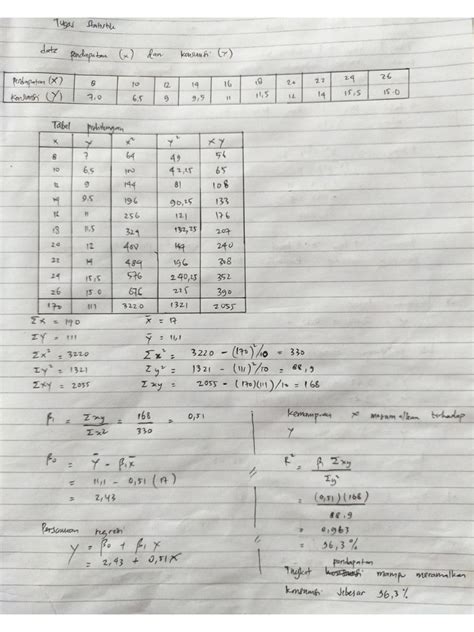 Tugas Statistik
data pendapatan (x) dan konsumsi (Y)
Pendapatan (X) 8 10 12 14 16 18 20 22 24 26
Konsumsi (Y) 7,0 6,5 9 9,5 11 11,5 12 14 15,5 15.0
Tabel perhitungan
x y x² y² xy
8 7 64 49 56
10 6,5 100 42,25 65
12 9 144 81 108
14 9.5 196 90,25 133
16 11 256 121 176
18 11.5 324 132,25 207
20 12 400 144 240
22 14 484 196 308
24 15,5 576 240,25 352
26 15.0 676 225 390
170 111 3220 1321 2055
Σx = 170 x̄ = 17
ΣY = 111 ȳ = 11,1
Σx² = 3220 Σx² = 3220 - (170)²/10 = 330
Σy² = 1321 Σy² = 1321 - (111)²/10 = 88,9
Σxy = 2055 Σxy = 2055 - (170)(111)/10 = 168
β1 = Σxy/Σx2 = 168/330 = 0,51
β0 = Ȳ - β1X̄
= 11,1 - 0,51 (17)
= 2,43
Persamaan regresi
Y = β0 + β1 X
= 2,43 + 0,51X
Kemampuan x meramalkan terhadap
Y
R² = β1 Σxy/Σy²
= (0,51)(168)/88,9
= 0,963
= 96,3%
pendapatan
Tingkat mampu meramalkan
konsumsi sebesar 96,3%